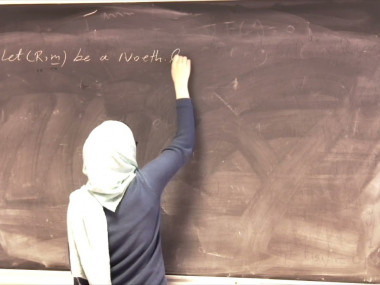 Let (R, m) be a Noeth.